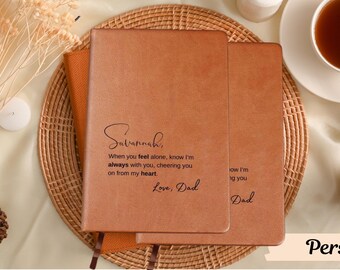 Savannah,
When you feel alone, know I'm
always with you, cheering you
on from my heart.
Love, Dad
now I'm
ng you
Dad
Pers